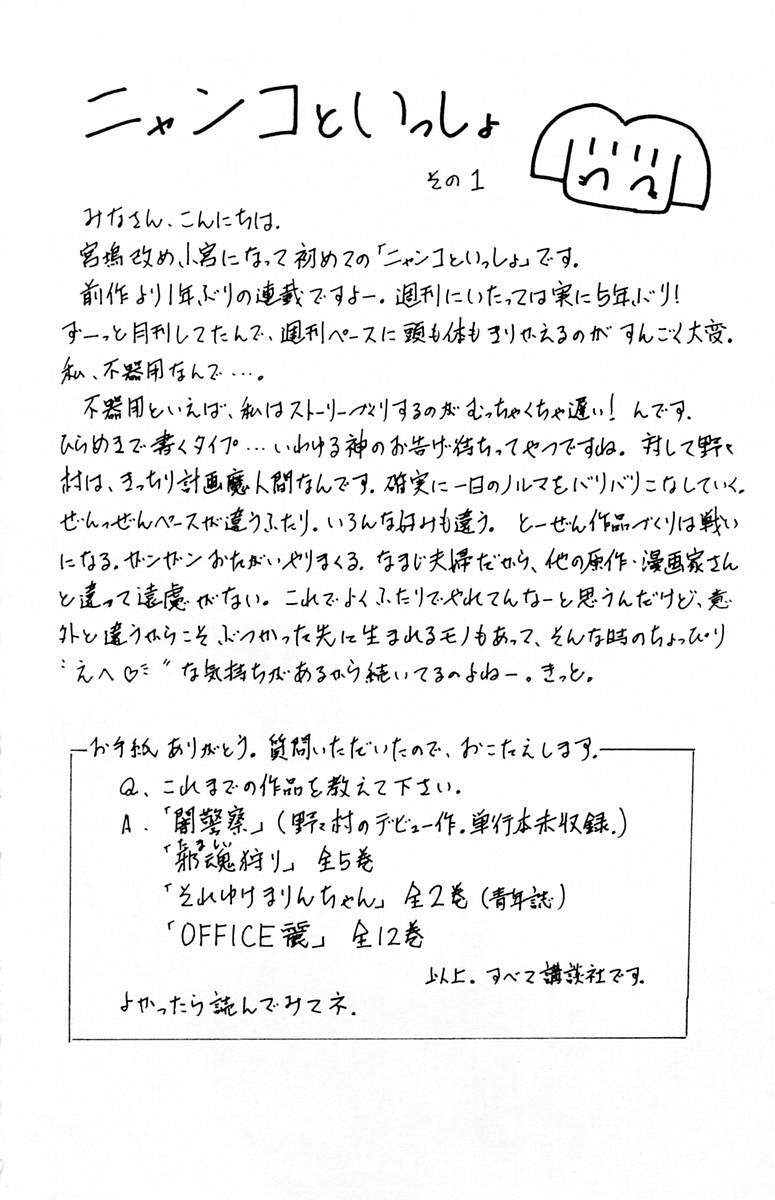 ニャンコといっしょ
その1
みなさん、こんにちは.
宮塢改め、小宮になって初めての「ニャンコといっしょ」です。
前作より1年ぶりの連載ですよー。週刊にいたっては実に5年ぶり!
ずーっと月刊してたんで、週刊ペースに頭も体もきりかえるのがすんごく大変。
私、不器用なんで…。
不器用といえば、私はストーリーづくりするのがむっちゃくちゃ遅い!んです.
ひらめきで書くタイプ…いわゆる神のお告げ待ちってやつですね。対して野々
村は、きっちり計画魔人間なんです.確実に一日のノルマをバリバリこなしていく.
ぜんっぜんペースが違うふたり.いろんな好みも違う。とーぜん作品づくりは戦い
になる.ガンガンおたがいやりまくる.なまじ夫婦だから、他の原作・漫画家さん
と違って遠慮がない。これでよくふたりでやれてんなーと思うんだけど、意
外と違うからこそぶつかった先に生まれるモノもあって、そんな時のちょっぴり
“えへ♡”な気持ちがあるから続いてるのよねー。きっと。
お手紙ありがとう。質問いただいたので、おこたえします.
Q、これまでの作品を教えて下さい.
A.「闇警察」(野々村のデビュー作.単行本未収録.)
たまい
「邪魂狩り」全5巻
「それゆけまりんちゃん」全2巻(青年誌)
「OFFICE麗」全12巻
以上。すべて講談社です.
よかったら読んでみてネ.